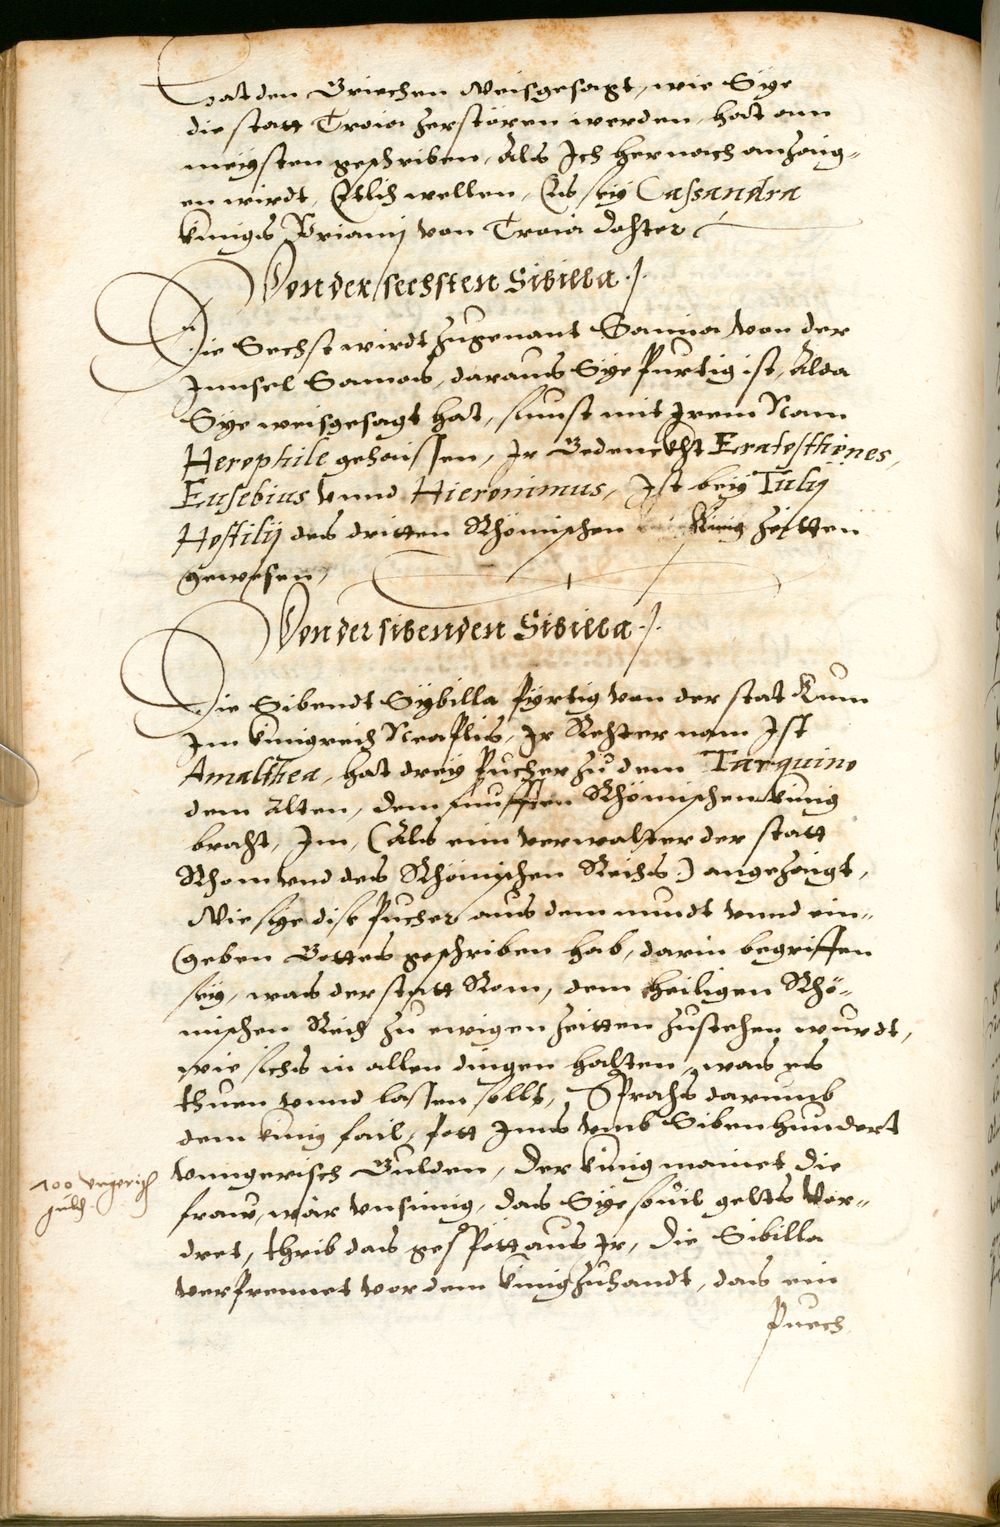 Hat den Griechen Weisgesagt, wie Sye
die statt Troia zerstören werden, hat am
meysten geschriben, Als Ich hernach anzaig-
en wirdt, Etlich wellen, Es sey Cassandra
kunigs Priamj von Troia dochter
Von der sechsten Sibilla
Die Sechst wirdt zugenant Samia von der
Innsel Samos, daraus Sye purtig ist, Alda
Sye weisgesagt hat, sunst mit Irem Nam
Herophile gehaissen, Ir Gedenckht Eratosthenes,
Eusebius vnnd Hieronimus, Ist bey Tulij
Hostilij des dritten Rhömischen Kinig zeitten
gewesen,
Von der sibenden Sibilla
Die Sibendt Sybilla pyrtig von der stat Kum
Im kunigreich Neaplis, Ir Rechter nam Ist
Amalthea, hat drey Pucher zu dem Tarquino
dem Alten, dem funfften Rhömischen kunig
bracht, Im, (Als eim verwalter der statt
Rhom vnd des Rhömischen Reichs) angezaigt,
Wie sye dise Pucher aus dem mundt vnnd ein-
geben Gottes geschriben hab, darin begriffen
sey, was der statt Rom, dem Heiligen Rhö-
mischen Reich zu ewigen zeitten zustehen wurdt,
wie sichs in allen dingen halten, was es
thuen vnnd lassen sollt, Sprachs darumb
dem kunig fail, pott Inns vmb Sibenhundert
vnngerisch Gulden, Der kunig mainet die
fraw, wär vnsinnig, das Sye souil gelts vor-
dret, thrib das gespött aus Ir, Die Sibilla
verprennet vor dem kunig zuhandt, das ein
Puech
700 vngerisch
guld.